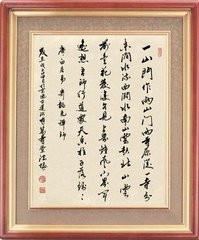 一山門作兩山門兩寺原從一寺分
東澗水流西澗水南山雲起北山雲
前臺花發後臺見上界鐘聲下界聞
遙想吾師行道處天香桂子落紛紛
唐白居易寄韜光禪師